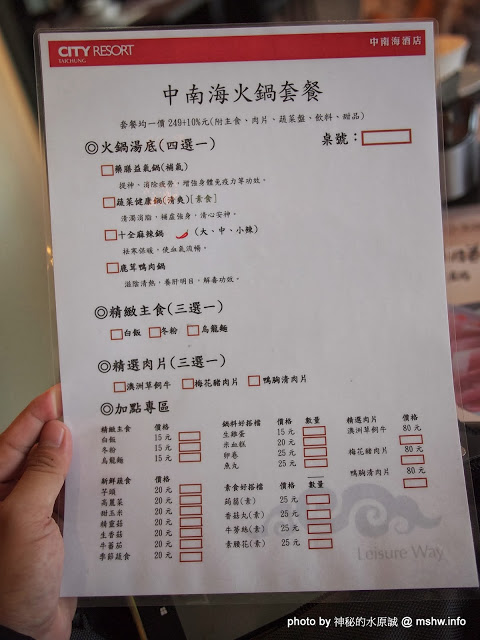 CITY RESORT
TAICHUNG
中南海酒店
中南海火鍋套餐
套餐均一價 249+10%元(附主食、肉片、蔬菜盤、飲料、甜品)
◎火鍋湯底(四選一)
桌號：
藥膳益氣鍋(補氣)
提神，消除疲勞，增強身體免疫力等功效。
蔬菜健康鍋(清爽)[素食]
清濁消脂，補虛強身，清心安神。
十全麻辣鍋 (大、中、小辣)
祛寒保暖，使血氣流暢。
鹿茸鴨肉鍋
滋陰清熱，養肝明目，解毒功效。
◎精緻主食(三選一)
白飯 冬粉 烏龍麵
◎精選肉片(三選一)
澳洲草飼牛 梅花豬肉片 鴨胸清肉片
◎加點專區
精緻主食 價格
白飯 15 元
冬粉 15 元
烏龍麵 15 元
鍋料好搭檔 價格 數量
生雞蛋 15 元
米血糕 20 元
卵卷 25 元
魚丸 25 元
精選肉片 價格
澳洲草飼牛 80 元
梅花豬肉片 80 元
鴨胸清肉片 80 元
新鮮蔬食 價格
芋頭 20 元
高麗菜 20 元
甜玉米 20 元
精靈菇 20 元
生香菇 20 元
牛蕃茄 20 元
季節蔬食 20 元
素食好搭檔 價格 數量
蒟蒻(素) 25 元
香菇丸(素) 25 元
牛蒡絲(素) 25 元
素腰花(素) 25 元
Leisure Way
photo by 神秘的水原誠 @ mshw.info